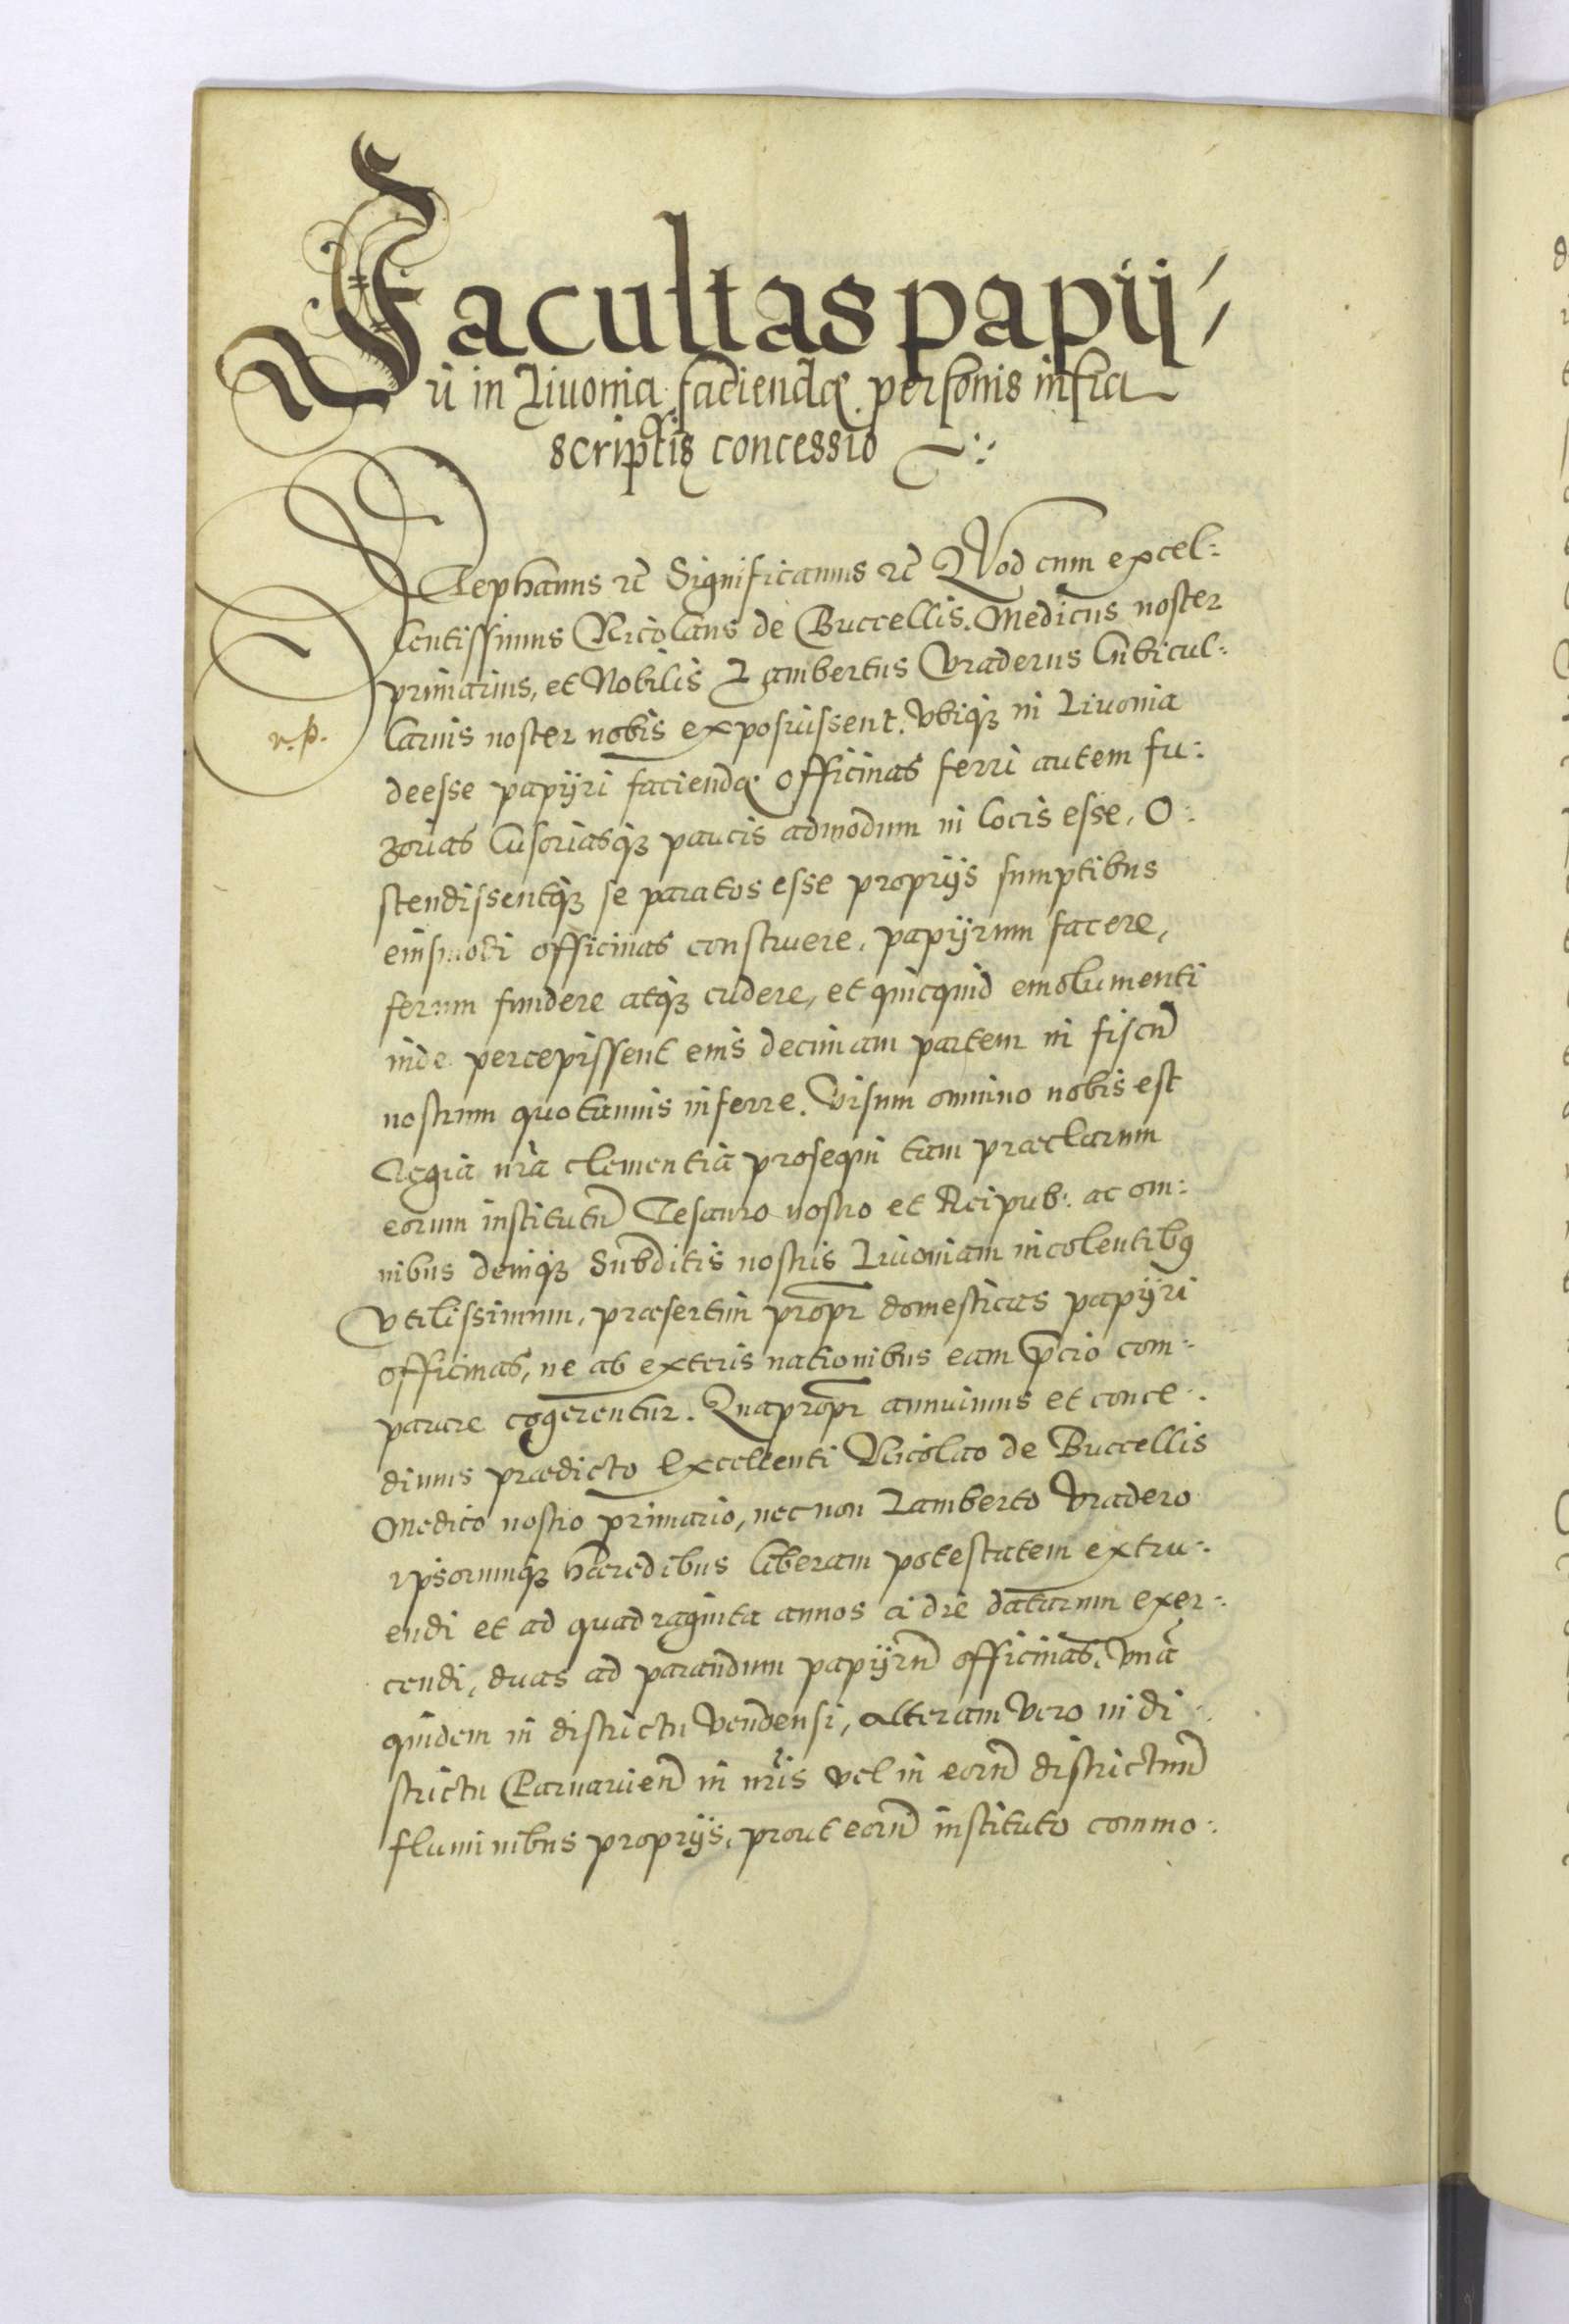 Facultas papij,
ri in Livonia faciendę personis infra
scriptis concessio
Stephanus rc̄ Significamus rc̄ QVod cum excel:
lentissimus Nicolaus de Buccellis. Medicus noster
primarius, et Nobilis Lambertus Vraderus Cubicul:
larius noster nobis exposuissent. Vbiqꝫ in Livonia
deesse papijri faciendę officinas ferri autem fu:
zorias Cusoriasqꝫ paucis admodum in locis esse, O:
stendissentqꝫ se paratos esse proprijs sumptibus
eiusmodi officinas construere, papijrum facere,
ferrum fundere atqꝫ cudere, et quicquid emolumenti
inde percepissent eius decimam partem in fiscū
nostrum quotannis inferre. Visum omnino nobis est
Regia nr̄a clementia prosequi tam praeclarum
eorum institutū Tesauro nostro et Reipub: ac om:
nibus deniqꝫ Subditis nostris Livoniam incolentibꝯ
Vtilissimum, praesertim propr̄ domesticas papijri
officinas, ne ab exteris nationibus eam p̄cio com:
parare cogerentur. Quapropr̄ annuimus et conce:
dimus praedicto Excellenti Nicolao de Buccellis
Medico nostro primario, nec non Lamberto Vradero
ipsorumqꝫ haeredibus liberam potestatem extru:
endi et ad quadraginta annos a die datarum exer:
cendi, duas ad parandum papijrū officinas, vnā
quidem in districtu Vendensi, alteram vero in di:
strictu Parnavien̄ in nr̄is vel in eorū districtuū
fluminibus proprijs, prout eorū instituto commo: